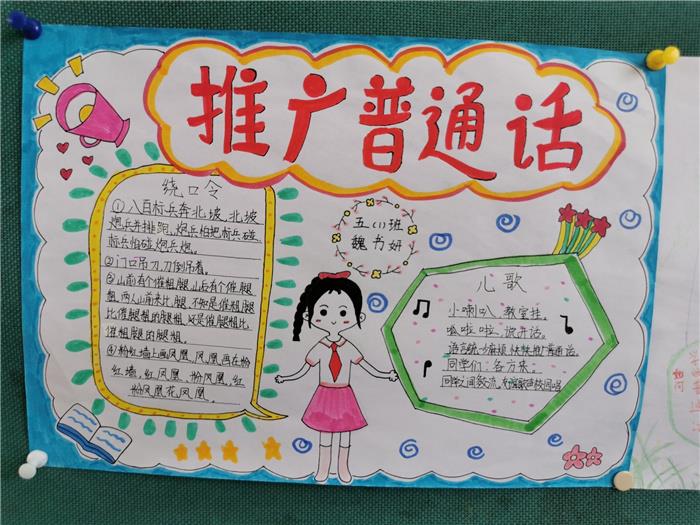 推广普通话
绕口令
①八百标兵奔北坡,北坡
炮兵并排跑,炮兵怕把标兵碰,
标兵怕碰炮兵炮。
②门口吊刀,刀倒吊着。
③山前有个催粗腿,山后有个催腿
粗,两人山前来比腿,不知是催粗腿
比催腿粗的腿粗,还是催腿粗比
催粗腿的腿粗。
④粉红墙上画凤凰,凤凰画在粉
红墙,红凤凰、粉凤凰,红
粉凤凰花凤凰。
五(1)班
魏书妍
儿歌
小喇叭,教室挂,
呱啦啦,说开话。
语言统一少麻烦,快快推广普通话。
同学们:各方来,
同学之间多交流,